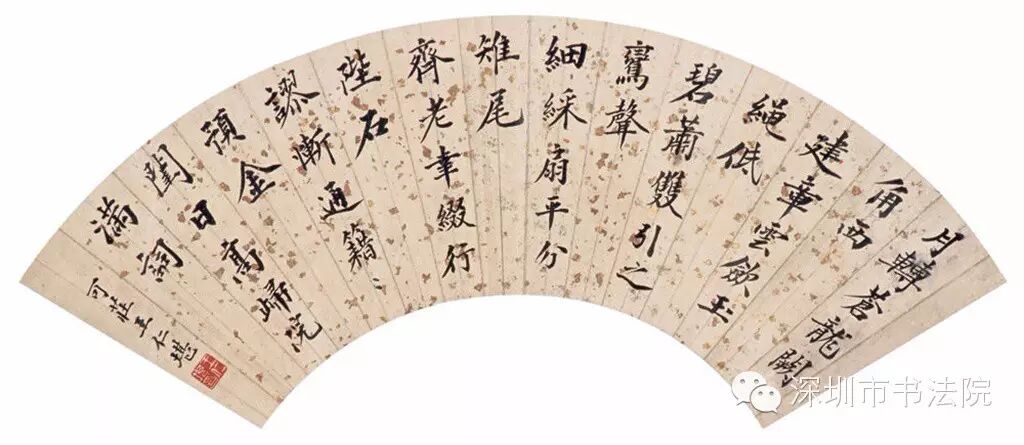 月轉蒼龍闕
角西
建章雲歛玉
繩低
碧蕭雙引之
鸞聲
細綵扇平分
雉尾
齊老幸綴行
陛石
謬漸通籍〻
預金
閨日高歸院
滿
可莊王仁堪
深圳市书法院